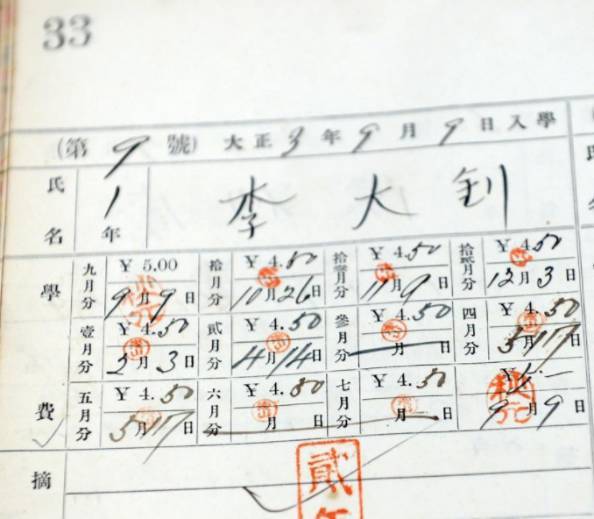 33
(第9號) 大正3年9月9日入學
氏名 1年 李大釗
學費
九月分 ¥ 5.00 9月9日
拾月分 ¥ 4.50 10月26日
拾壹月分 ¥ 4.50 11月9日
拾貳月分 ¥ 4.50 12月3日
壹月分 ¥ 4.50 2月3日
貳月分 ¥ 4.50 4月14日
參月分 ¥ 4.50 月 日
四月分 ¥ 4.50 5月17日
五月分 ¥ 4.50 5月17日
六月分 ¥ 4.50 月 日
七月分 ¥ 4.50 月 日
9月9日
摘
貳年